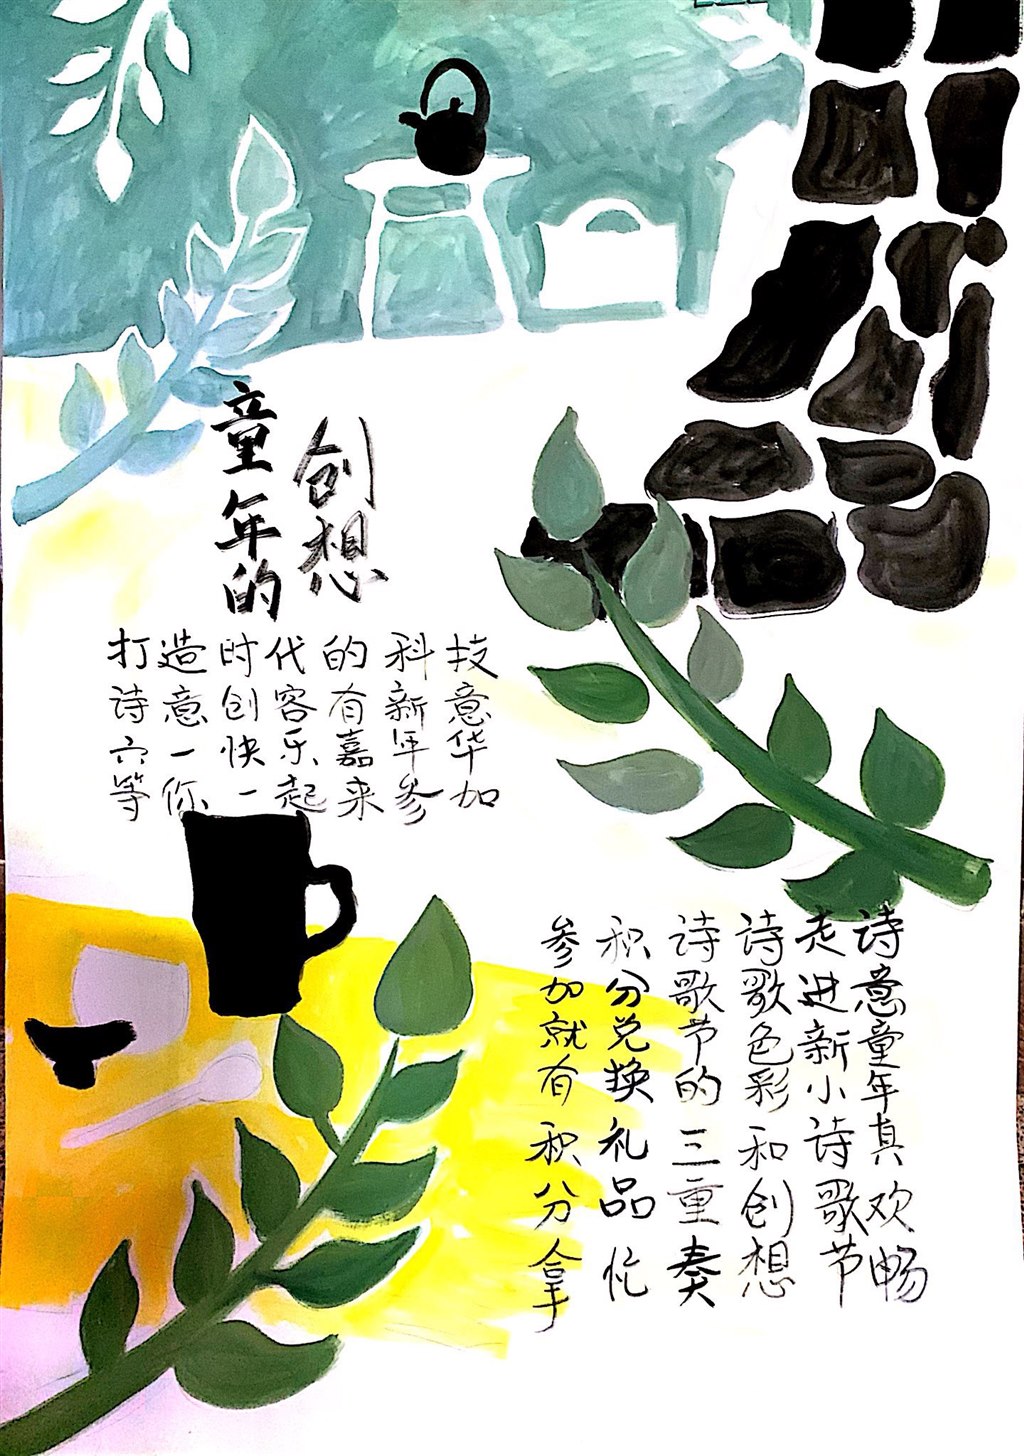 童年的
创想
打造时代的科技
诗意创容有新意
六一快乐嘉年华
等你一起来参加
诗意童年真欢畅
走进新小诗歌节
诗歌色彩和创想
诗歌节的三重奏
积分兑换礼品忙
参加就有积分拿